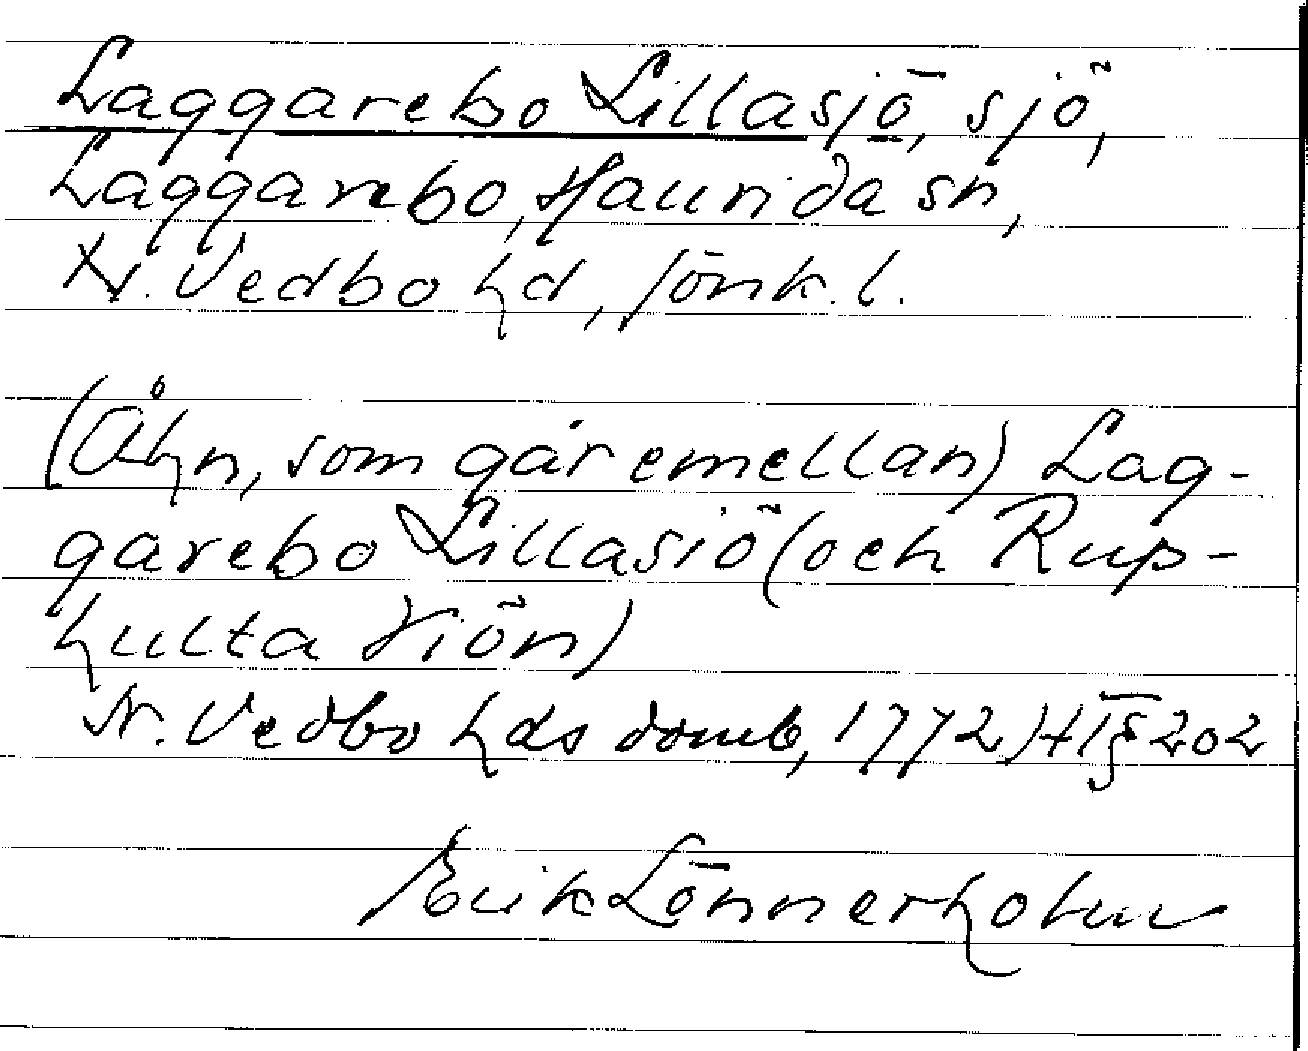 Laggarebo Lillasjö, sjö,
Laggarebo, Haurida sn,
N. Vedbo hd, Jönk. l.
(Åhn, som går emellan) Lag-
garebo Lillasiö (och Rup-
hulta Siön)
N. Vedbo hds domb, 1772) HT § 202
Erik Lönnerholm